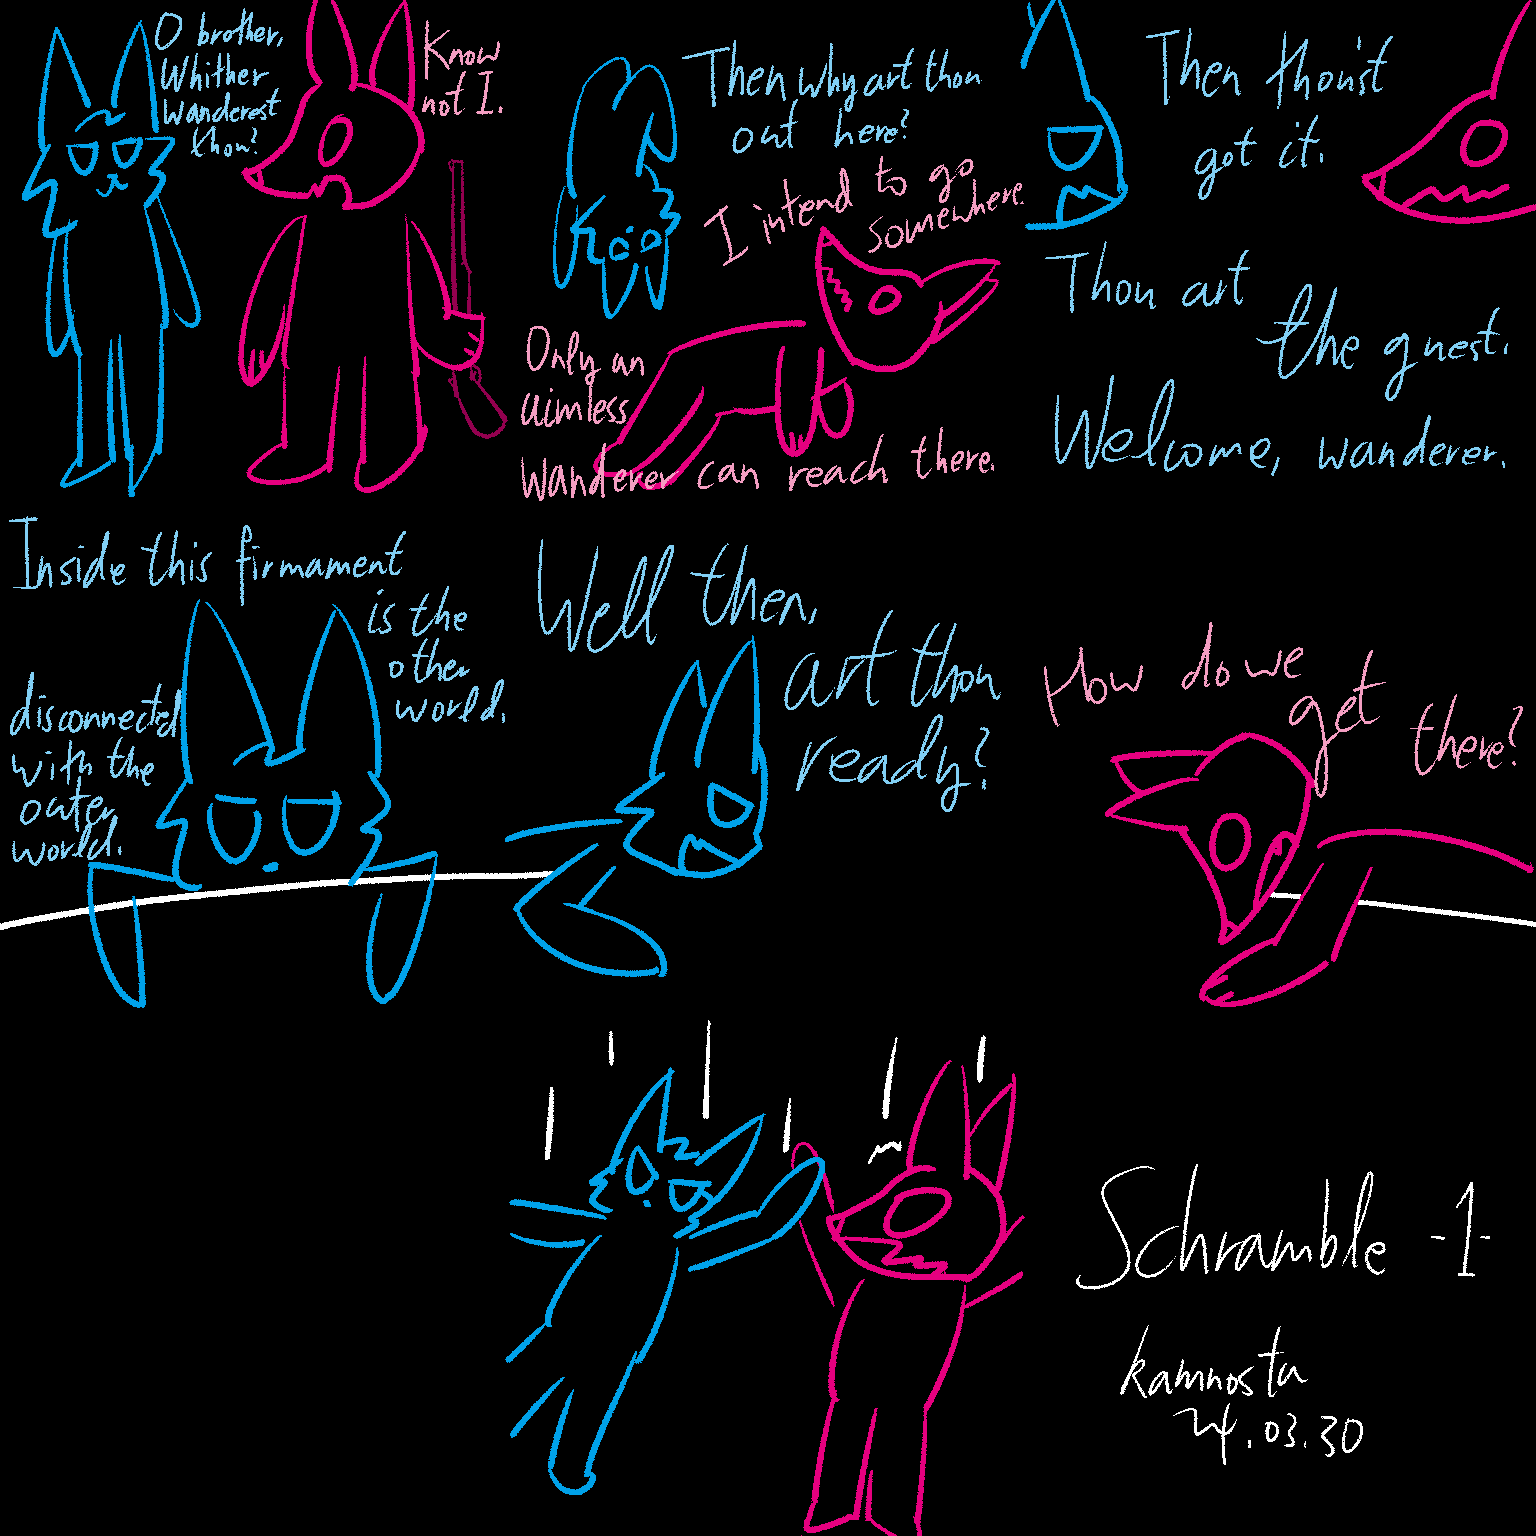 O brother,
Whither
wanderest
thou?
Know
not I.
Then why art thou
out here?
I intend to go
somewhere.
Only an
aimless
wanderer can reach there.
Then thou'st
got it.
Thou art
the guest.
Welcome, wanderer.
Inside this firmament
is the
other
world.
disconnected
with the
outer
world.
Well then,
art thou
ready?
How do we
get
there?
Schramble -1-
kamnosta
24.03.30